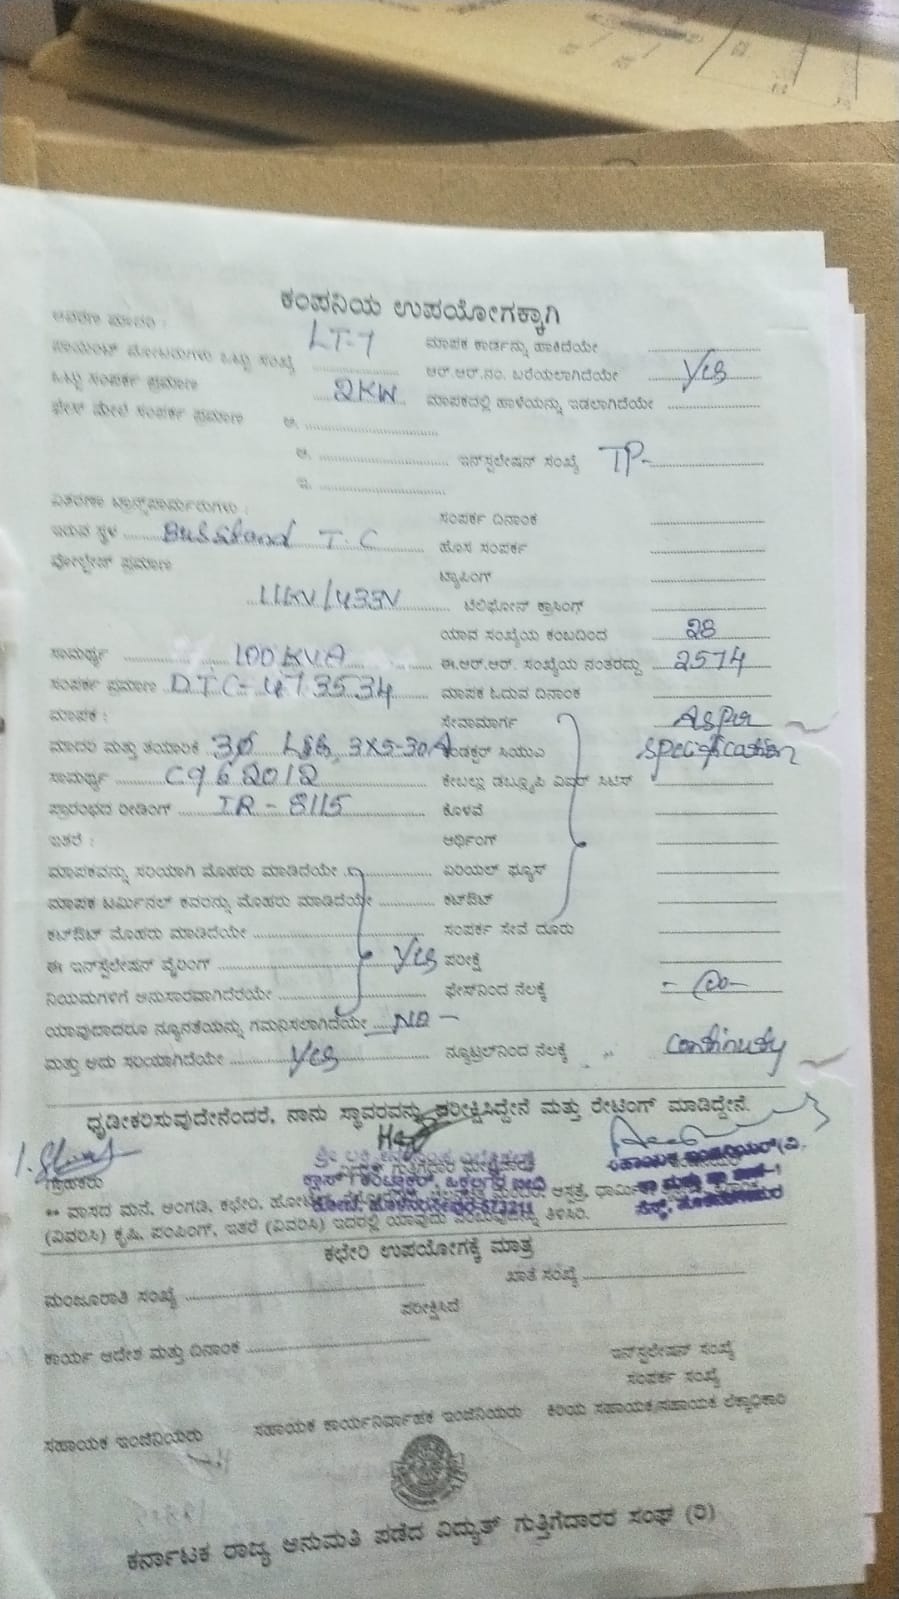 ಕಂಪನಿಯ ಉಪಯೋಗಕ್ಕಾಗಿ
LT-7 ಮಾಪಕ ಕಾರ್ಡನ್ನು ಹಾಕಿದೆಯೇ
ಪಾಯಿಂಟ್ ಮೋಟಾರುಗಳು ಒಟ್ಟು ಸಂಖ್ಯೆ ಆರ್.ಆರ್.ನಂ. ಬರೆಯಲಾಗಿದೆಯೇ Yes
ಒಟ್ಟು ಸಂಪರ್ಕ ಪ್ರಮಾಣ 2KW ಮಾಪಕದಲ್ಲಿ ಹಾಳೆಯನ್ನು ಇಡಲಾಗಿದೆಯೇ
ಫೇಸ್ ಮೇಲೆ ಸಂಪರ್ಕ ಪ್ರಮಾಣ ಅ.
ಆ. ಇನ್‌ಸ್ಟಲೇಷನ್ ಸಂಖ್ಯೆ TP-
ಇ.
ವಿತರಣಾ ಟ್ರಾನ್ಸ್‌ಫಾರ್ಮರುಗಳು : ಸಂಪರ್ಕ ದಿನಾಂಕ
ಇರುವ ಸ್ಥಳ Busstand T.C ಹೊಸ ಸಂಪರ್ಕ
ವೋಲ್ಟೇಜ್ ಪ್ರಮಾಣ ಟ್ಯಾಪಿಂಗ್
11KV/433V ಟೆಲಿಫೋನ್ ಕ್ರಾಸಿಂಗ್
ಯಾವ ಸಂಖ್ಯೆಯ ಕಂಬದಿಂದ 28
ಸಾಮರ್ಥ್ಯ 100KVA ಈ.ಆರ್.ಆರ್. ಸಂಖ್ಯೆಯ ನಂತರದ್ದು 2574
ಸಂಪರ್ಕ ಪ್ರಮಾಣ DTC-473534 ಮಾಪಕ ಓದುವ ದಿನಾಂಕ
ಮಾಪಕ : ಸೇವಾಮಾರ್ಗ As per
ಮಾದರಿ ಮತ್ತು ತಯಾರಿಕೆ 3Ø L&G, 3X5-30A Specification
ಸಾಮರ್ಥ್ಯ C962012 ಕೇಬಲ್ಲು
ಪ್ರಾರಂಭದ ರೀಡಿಂಗ್ IR-8115 ಕೊಳವೆ
ಇತರೆ : ಅರ್ಥಿಂಗ್
ಮಾಪಕವನ್ನು ಸರಿಯಾಗಿ ಮೊಹರು ಮಾಡಿದೆಯೇ ಏರಿಯಲ್ ಫ್ಯೂಸ್
ಮಾಪಕ ಟರ್ಮಿನಲ್ ಕವರನ್ನು ಮೊಹರು ಮಾಡಿದೆಯೇ ಕಟ್‌ಔಟ್
ಕಟ್‌ಔಟ್ ಮೊಹರು ಮಾಡಿದೆಯೇ ಸಂಪರ್ಕ ಸೇವೆ ದೂರು
ಈ ಇನ್‌ಸ್ಟಲೇಷನ್ ವೈರಿಂಗ್ Yes ಪರೀಕ್ಷೆ
ನಿಯಮಗಳಿಗೆ ಅನುಸಾರವಾಗಿದೆರಯೇ ಫೇಸ್‌ನಿಂದ ನೆಲಕ್ಕೆ
ಯಾವುದಾದರೂ ನ್ಯೂನತೆಯನ್ನು ಗಮನಿಸಲಾಗಿದೆಯೇ NO -
ಮತ್ತು ಅದು ಸರಿಯಾಗಿದೆಯೇ Yes ನ್ಯೂಟ್ರಲ್‌ನಿಂದ ನೆಲಕ್ಕೆ Continuty
ಧೃಡೀಕರಿಸುವುದೇನೆಂದರೆ, ನಾನು ಸ್ಥಾವರವನ್ನು ಪರೀಕ್ಷಿಸಿದ್ದೇನೆ ಮತ್ತು ರೇಟಿಂಗ್ ಮಾಡಿದ್ದೇನೆ.
ಗ್ರಾಹಕರು
** ವಾಸದ ಮನೆ, ಅಂಗಡಿ, ಕಛೇರಿ, ಆಸ್ಪತ್ರೆ,
(ವಿವರಿಸಿ) ಕೃಷಿ, ಪಂಪಿಂಗ್, ಇತರೆ (ವಿವರಿಸಿ) ಇದರಲ್ಲಿ ಯಾವುದು ಎಂಬುವುದನ್ನು ತಿಳಿಸಿರಿ.
ಕಛೇರಿ ಉಪಯೋಗಕ್ಕೆ ಮಾತ್ರ
ಮಂಜೂರಾತಿ ಸಂಖ್ಯೆ ಖಾತೆ ಸಂಖ್ಯೆ
ಪರೀಕ್ಷಿಸಿದೆ
ಕಾರ್ಯ ಆದೇಶ ಮತ್ತು ದಿನಾಂಕ ಇನ್‌ಸ್ಟಲೇಷನ್ ಸಂಖ್ಯೆ
ಸಂಪರ್ಕ ಸಂಖ್ಯೆ
ಸಹಾಯಕ ಇಂಜಿನಿಯರು ಸಹಾಯಕ ಕಾರ್ಯನಿರ್ವಾಹಕ ಇಂಜಿನಿಯರು ಕಿರಿಯ ಸಹಾಯಕ/ಸಹಾಯಕ ಲೆಕ್ಕಾಧಿಕಾರಿ
ಕರ್ನಾಟಕ ರಾಜ್ಯ ಅನುಮತಿ ಪಡೆದ ವಿದ್ಯುತ್ ಗುತ್ತಿಗೆದಾರರ ಸಂಘ (ರಿ)